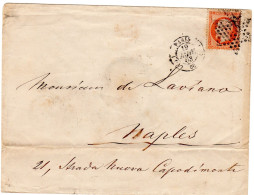 PARIS
Monsieur de Laviano
Naples
21, Strada Nuova Capodimonte